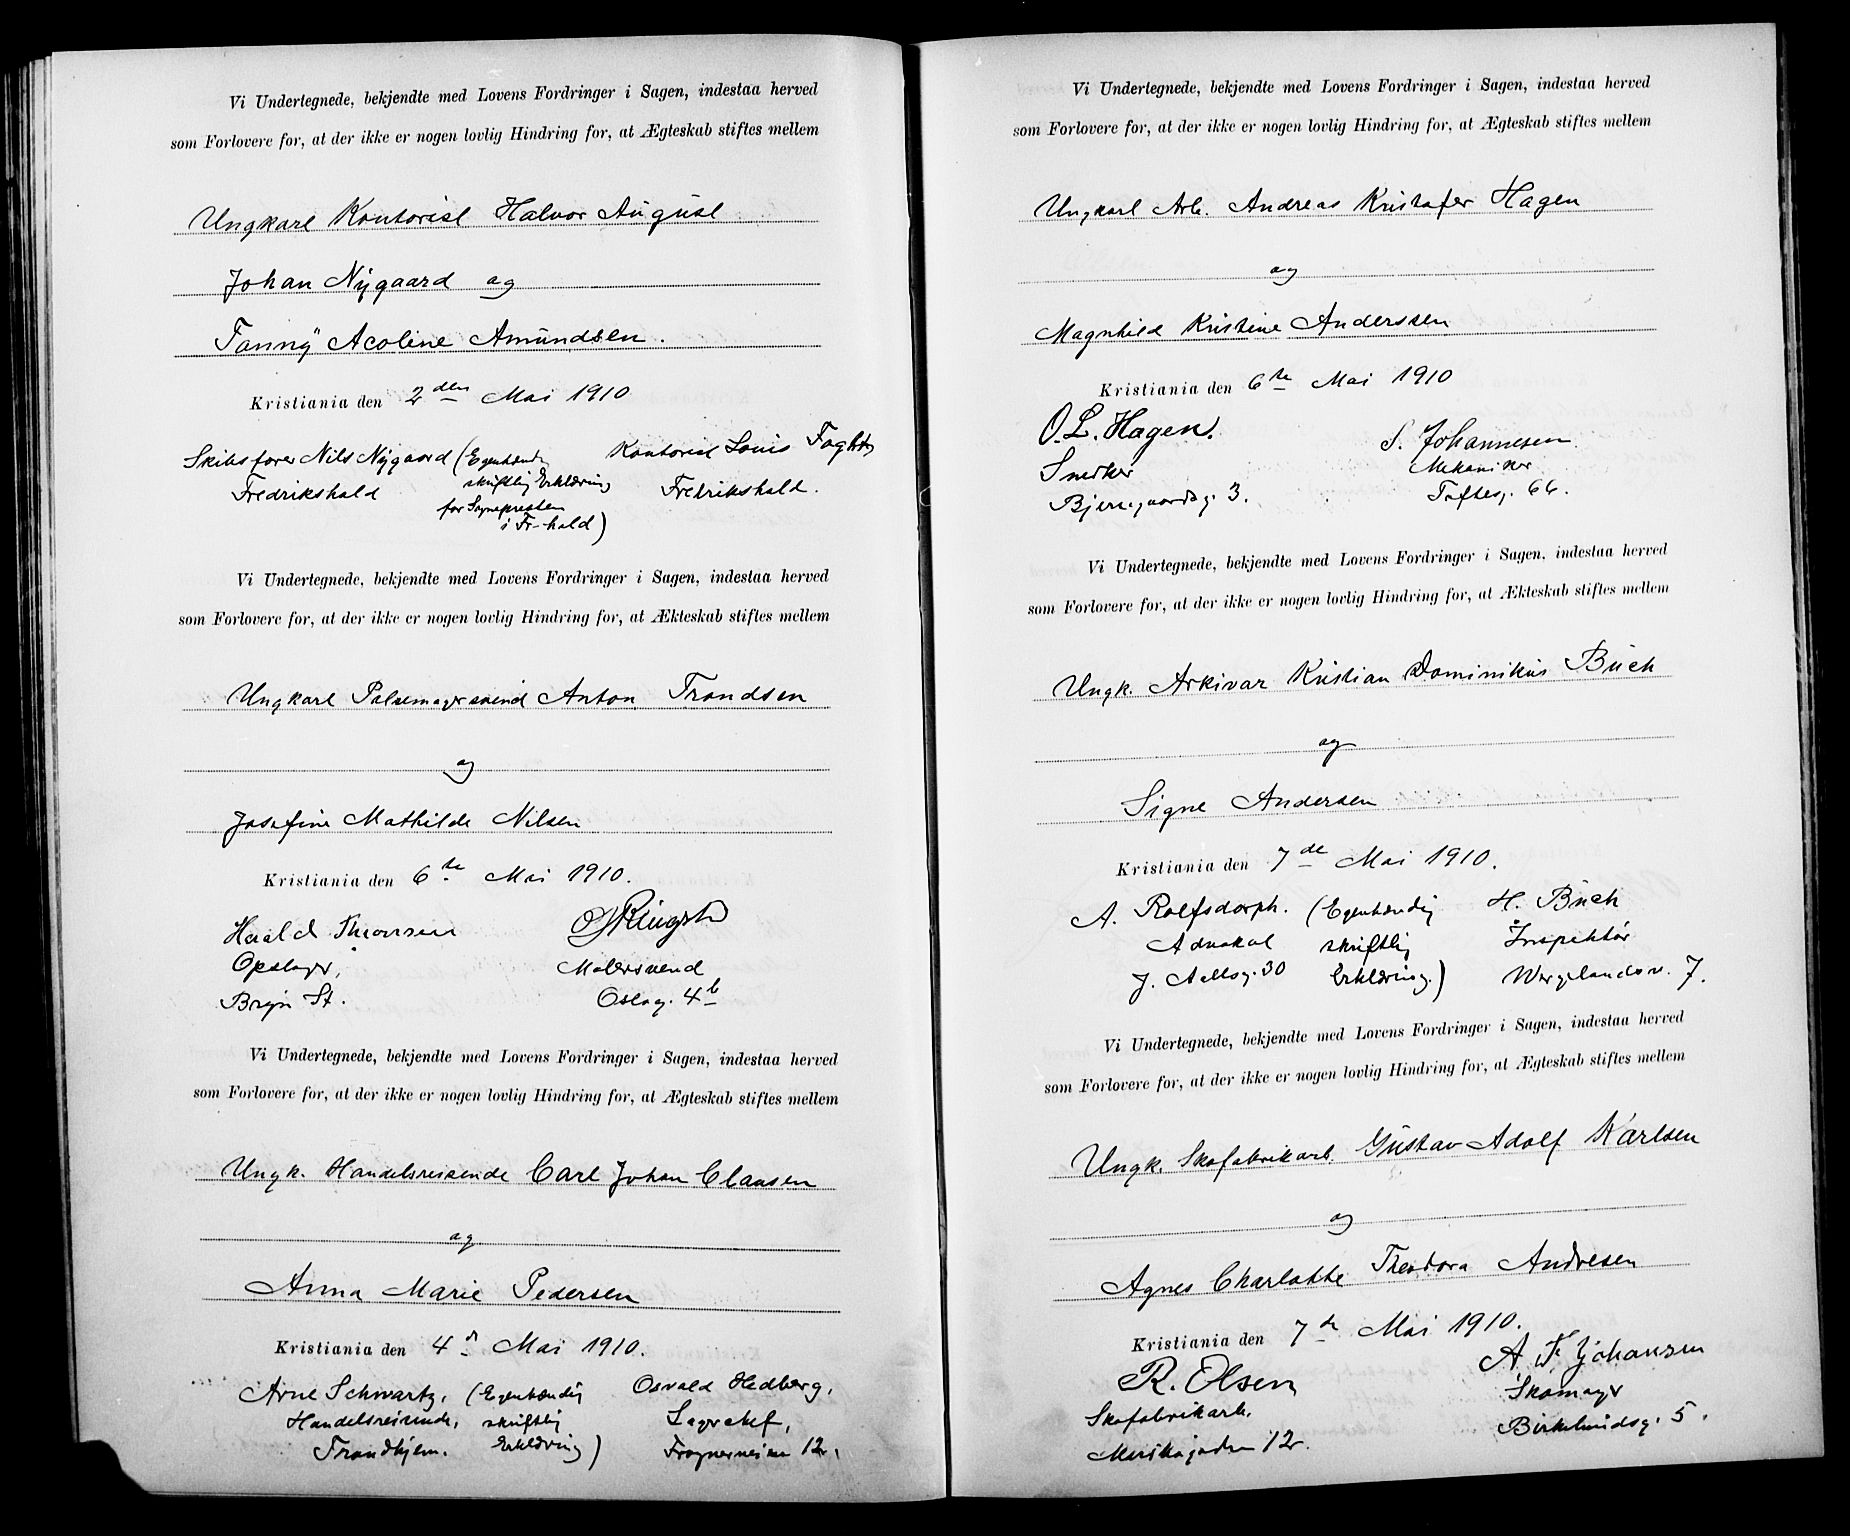 Vi Undertegnede, bekjendte med Lovens Fordringer i Sagen, indestaa herved
som Forlovere for, at der ikke er nogen lovlig Hindring for, at Ægteskab stiftes mellem
Ungkarl Kontorist Halvor August
Johan Nygaard og
Fanny Acoline Amundsen.
Kristiania den 2den Mai 1910
Skibsfører Nils Nygaard (Egenhændig Kontorist Louis
Fredrikshald skriftlig Erklæring Fredrikshald.
for Sognepresten
i Fr-hald)
Vi Undertegnede, bekjendte med Lovens Fordringer i Sagen, indestaa herved
som Forlovere for, at der ikke er nogen lovlig Hindring for, at Ækteskab stiftes mellem
Ungkarl Pølsemagersvend Anton Trondsen
og
Josefine Mathilde Nilsen
Kristiania den 6te Mai 1910.
Harald Thoresen
Opslager, Malersvend
Bryn St. Oslog. 4b
Vi Undertegnede, bekjendte med Lovens Fordringer i Sagen, indestaa herved
som Forlovere for, at der ikke er nogen lovlig Hindring for, at Ægteskab stiftes mellem
Ungk. Handelsreisende Carl Johan Clausen
og
Anna Marie Pedersen
Kristiania den 4d Mai 1910.
Arne Schwartz, (Egenhændig Osvald Hedberg,
Handelsreisende, skriftlig Lagerchef,
Trondhjem. Erklæring) Frognerveien 12,
Vi Undertegnede, bekjendte med Lovens Fordringer i Sagen, indestaa herved
som Forlovere for, at der ikke er nogen lovlig Hindring for, at Ægteskab stiftes mellem
Ungkarl Arb. Andreas Kristofer Hagen
og
Magnhild Kristine Anderssen
Kristiania den 6te Mai 1910
O. L. Hagen. S. Johannesen
Snedker Mekaniker
Bjerregaardsg. 3. Toftesg. 66.
Vi Undertegnede, bekjendte med Lovens Fordringer i Sagen, indestaa herved
som Forlovere for, at der ikke er nogen lovlig Hindring for, at Ækteskab stiftes mellem
Ungk. Arkivar Kristian Dominikus Buch
og
Signe Andersen
Kristiania den 7de Mai 1910.
A. Rolfsdorph. (Egenhændig H. Buch
Advokat skriftlig Inspektør
J. Aallsg. 30 Erklæring.) Wergelandsv. 7.
Vi Undertegnede, bekjendte med Lovens Fordringer i Sagen, indestaa herved
som Forlovere for, at der ikke er nogen lovlig Hindring for, at Ægteskab stiftes mellem
Ungk. Skofabrikarb. Gustav Adolf Karlsen
og
Agnes Charlotte Theodora Andresen
Kristiania den 7de Mai 1910.
R. Olsen A. F. Johansen
Skofabrikarb. Skomager
12. Birkelundsg. 5.